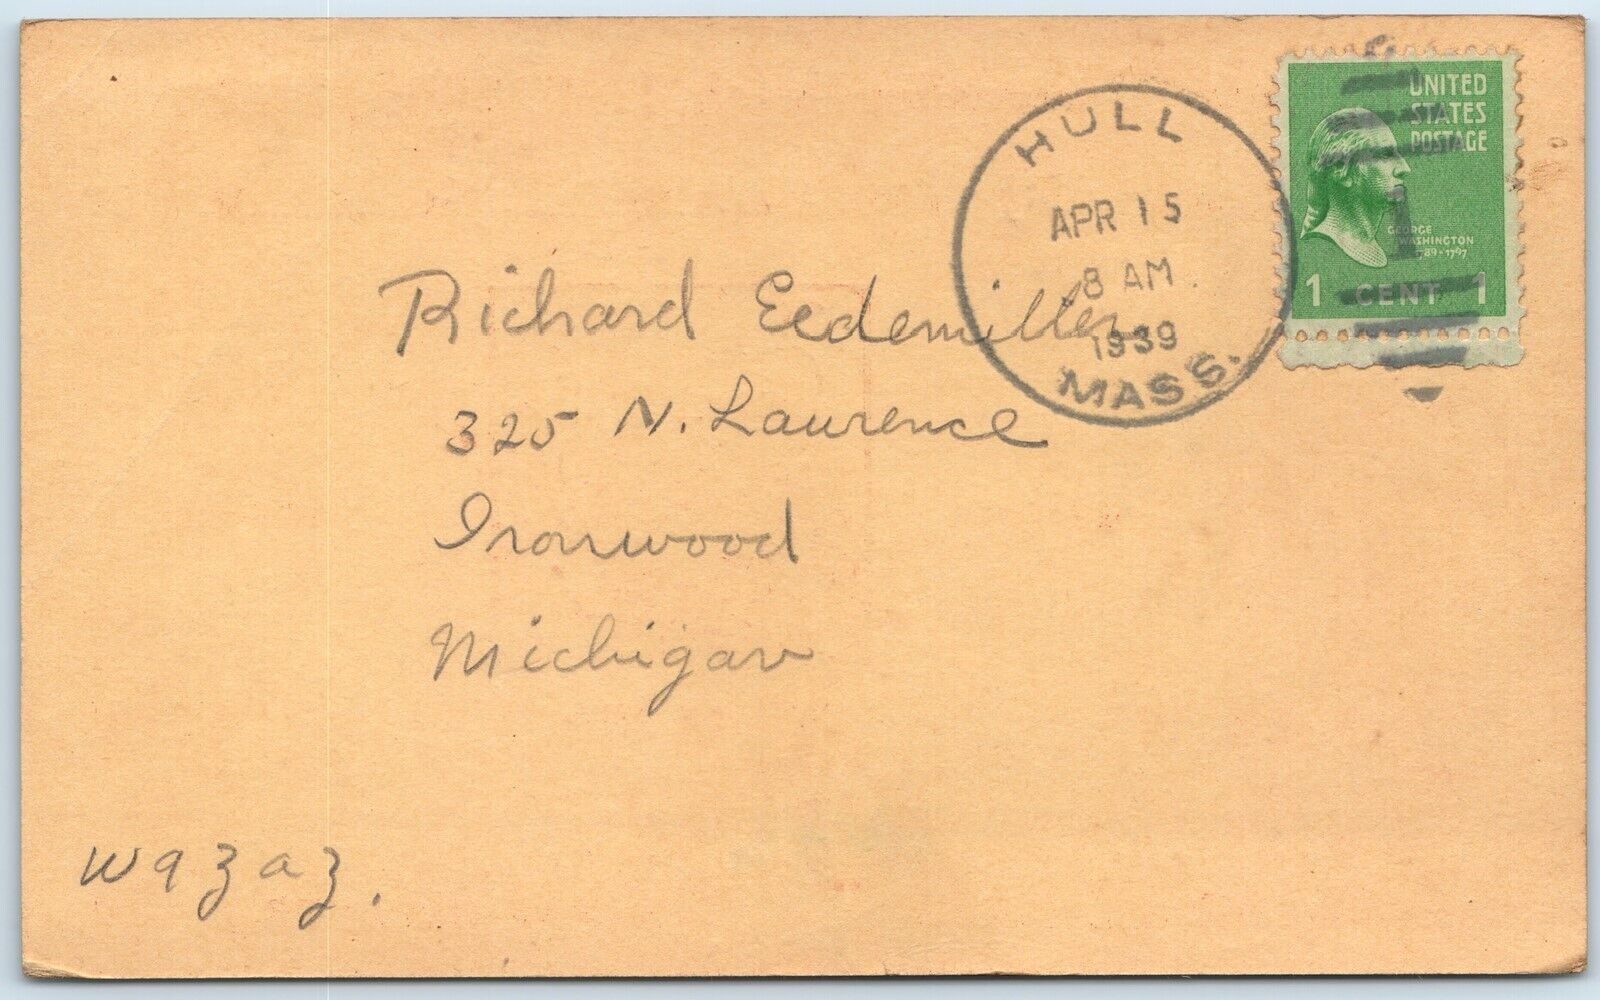 HULL
APR 15
8 AM
1939
MASS.
UNITED
STATES
POSTAGE
GEORGE
WASHINGTON
1789-1797
1 CENT 1
1
Richard Eedemiller
325 N. Laurence
Ironwood
Michigan
w9zaz.